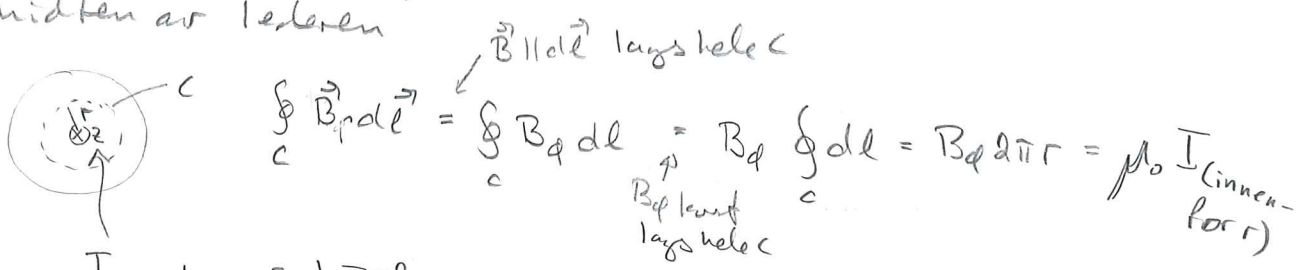 av lederen
B⃗ || dl⃗ langs hele C
C
r
z
∮_C B⃗ · dl⃗ = ∮_C B_φ dl = B_φ ∮_C dl = B_φ 2πr = μ₀ I_(innen-
for r)
B_φ konst
langs hele C
I